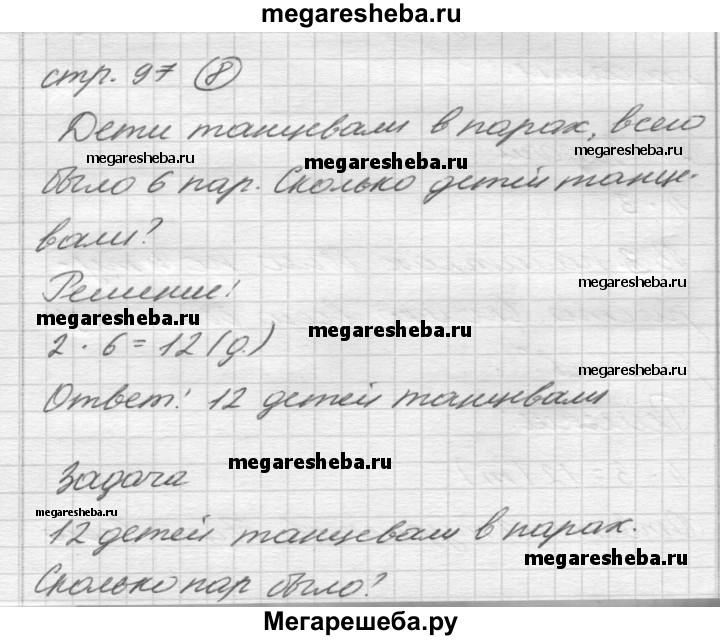 megaresheba.ru
стр. 97 (8)
Дети танцевали в парах, всего
megaresheba.ru megaresheba.ru megaresheba.ru
было 6 пар. Сколько детей танце-
вали?
Решение:
megaresheba.ru
megaresheba.ru megaresheba.ru
2 · 6 = 12 (д.)
megaresheba.ru
Ответ: 12 детей танцевали
megaresheba.ru
Задача
megaresheba.ru
12 детей танцевали в парах.
megaresheba.ru
Сколько пар было?
Мегарешеба.ру